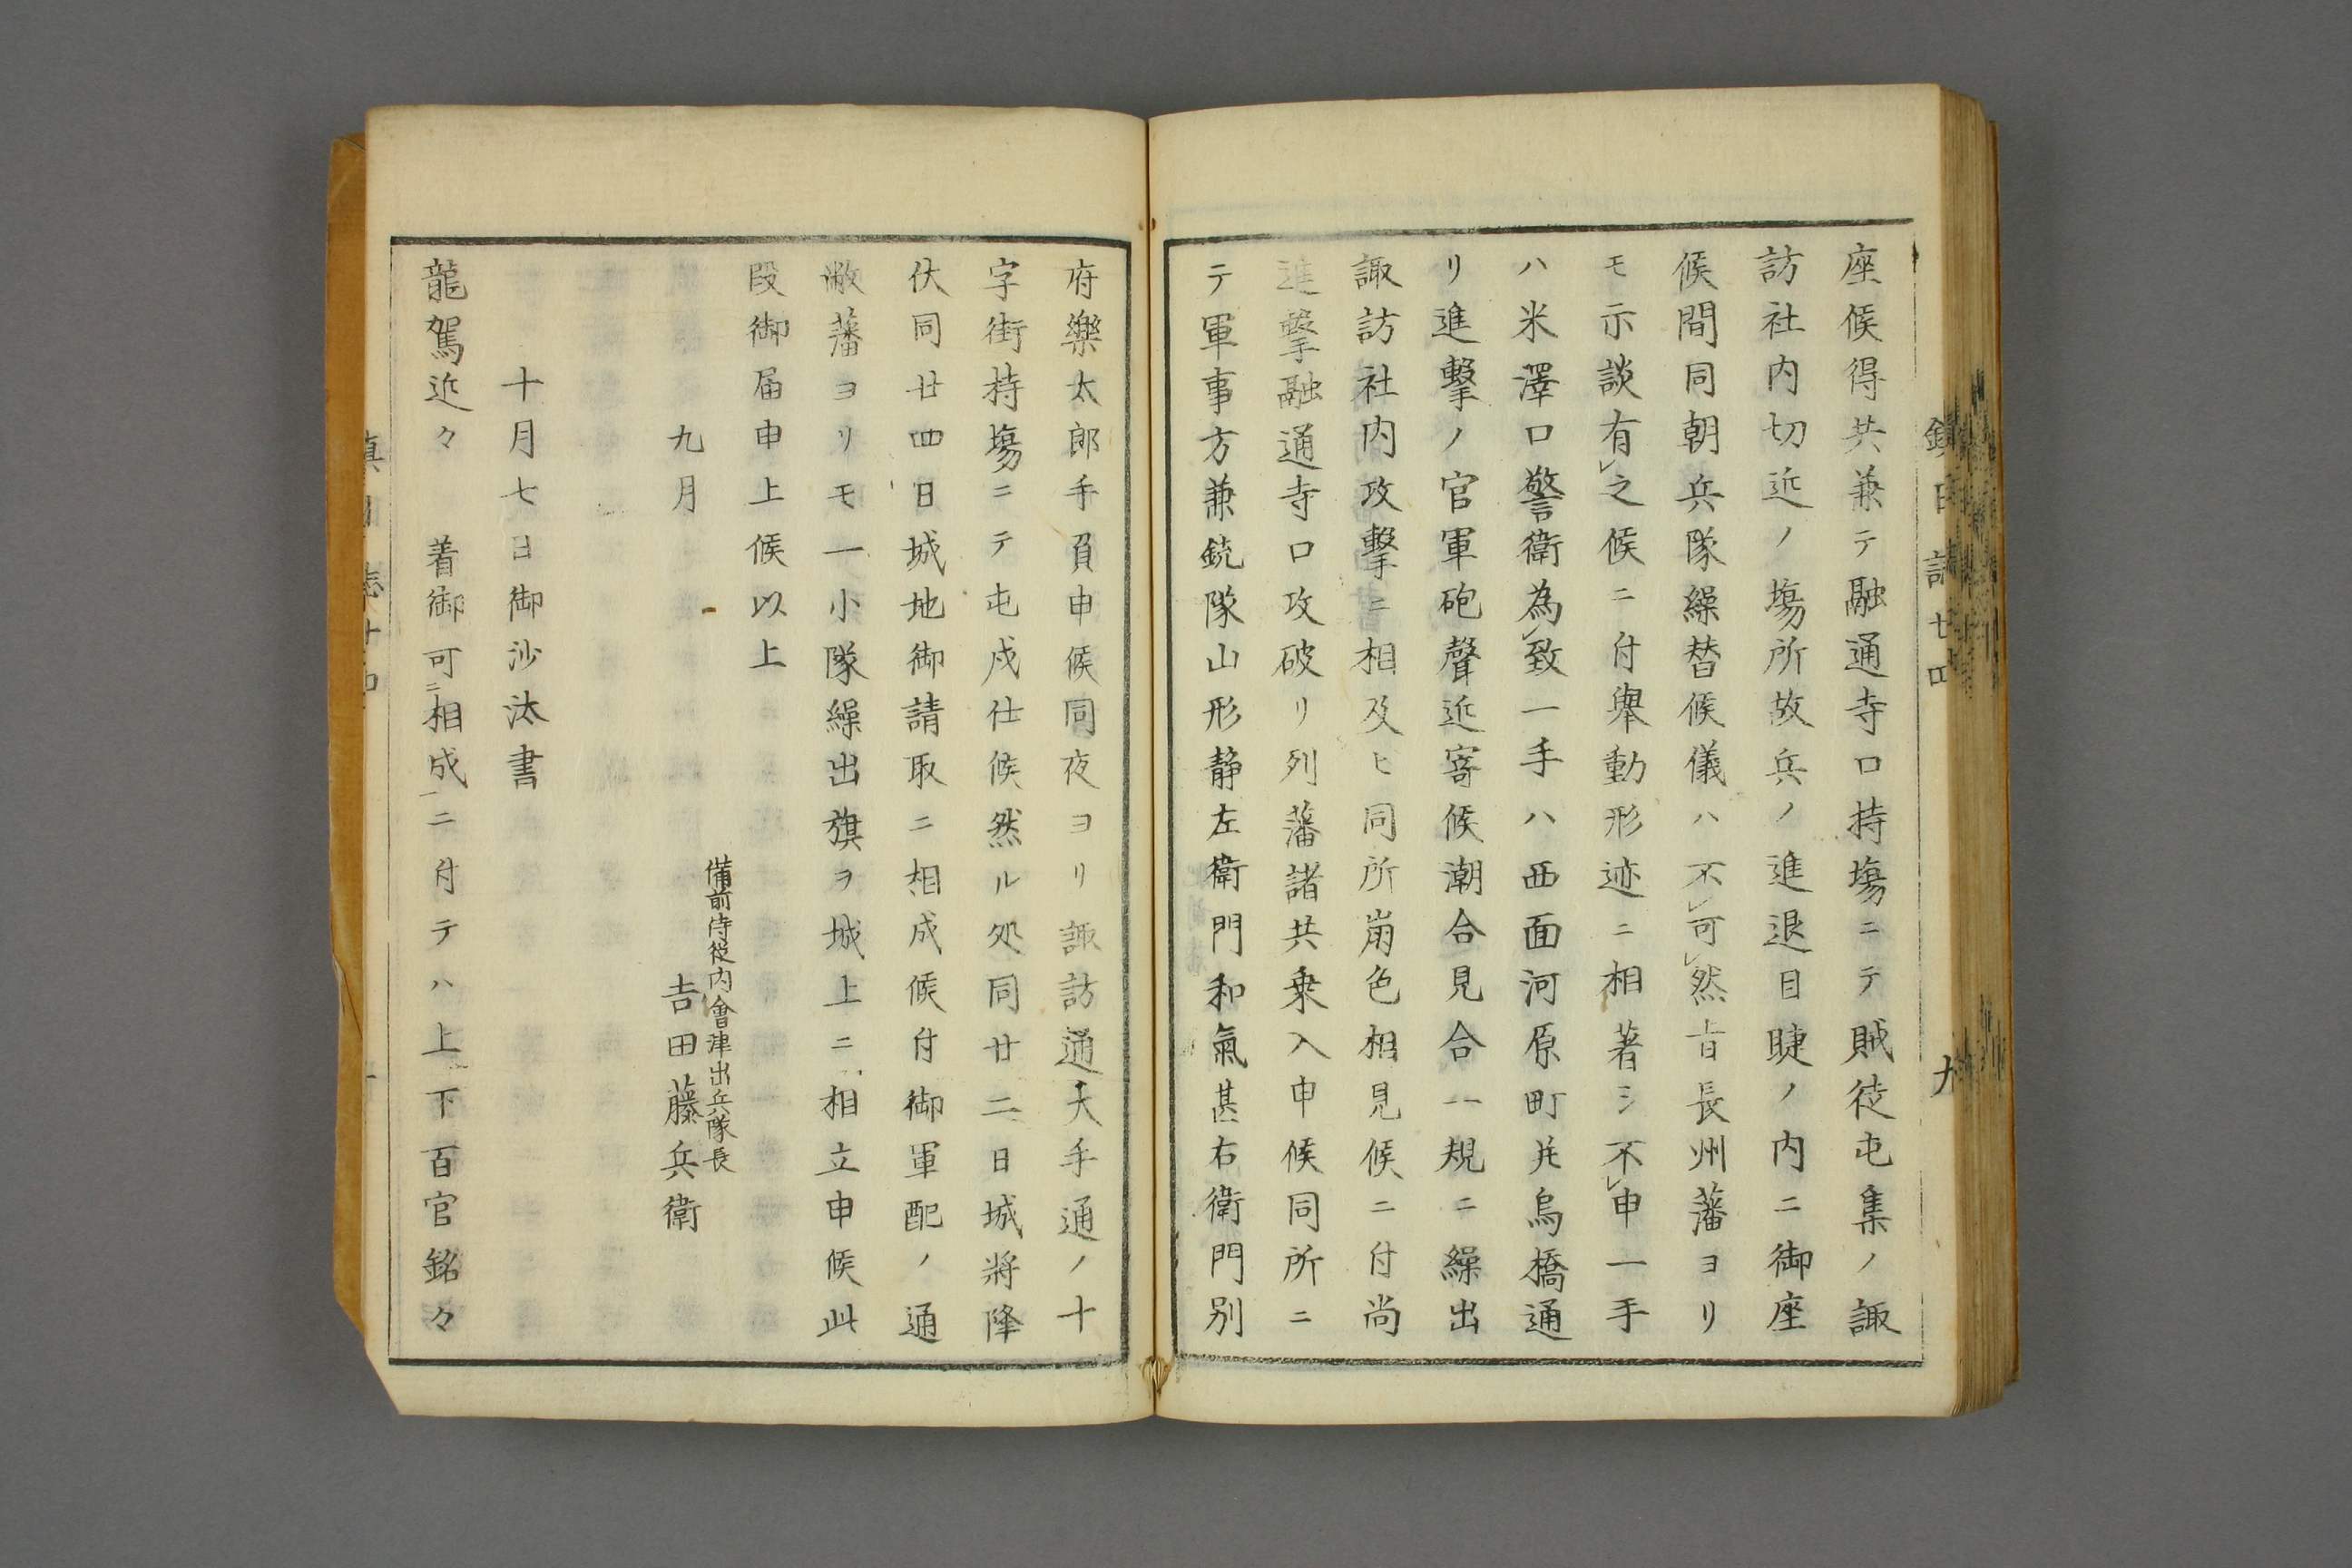 座候得共兼テ融通寺口持塲ニテ賊徒屯集ノ諏
訪社内切近ノ塲所故兵ノ進退目睫ノ内ニ御座
候間同朝兵隊繰替候儀ハ不レ可レ然旨長州藩ヨリ
モ示談有レ之候ニ付舉動形迹ニ相著シ不レ申一手
ハ米澤口警衛為レ致一手ハ西面河原町并烏橋通
リ進擊ノ官軍砲聲近寄候潮合見合一規ニ繰出
諏訪社内攻擊ニ相及ヒ同所崩色相見候ニ付尚
進擊融通寺口攻破リ列藩諸共乗入申候同所ニ
テ軍事方兼銃隊山形静左衛門和氣甚右衛門別
府樂太郎手負申候同夜ヨリ諏訪通大手通ノ十
字街持塲ニテ屯戍仕候然ル処同廿二日城將降
伏同廿四日城地御請取ニ相成候付御軍配ノ通
敝藩ヨリモ一小隊繰出旗ヲ城上ニ相立申候此
段御届申上候以上
九月
備前侍從内會津出兵隊長
吉田藤兵衛
十月七日御沙汰書
龍駕近々 着御可ニ相成一ニ付テハ上下百官銘々
鎮日誌廿四
九